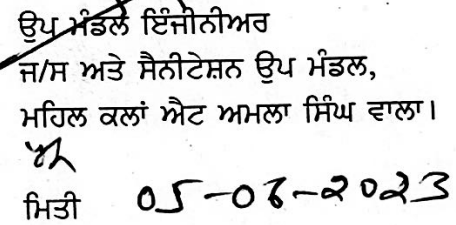 ਉਪ ਮੰਡਲ ਇੰਜੀਨੀਅਰ
ਜ/ਸ ਅਤੇ ਸੈਨੀਟੇਸ਼ਨ ਉਪ ਮੰਡਲ,
ਮਹਿਲ ਕਲਾਂ ਐਟ ਅਮਲਾ ਸਿੰਘ ਵਾਲਾ।
ਮਿਤੀ 05-06-2023